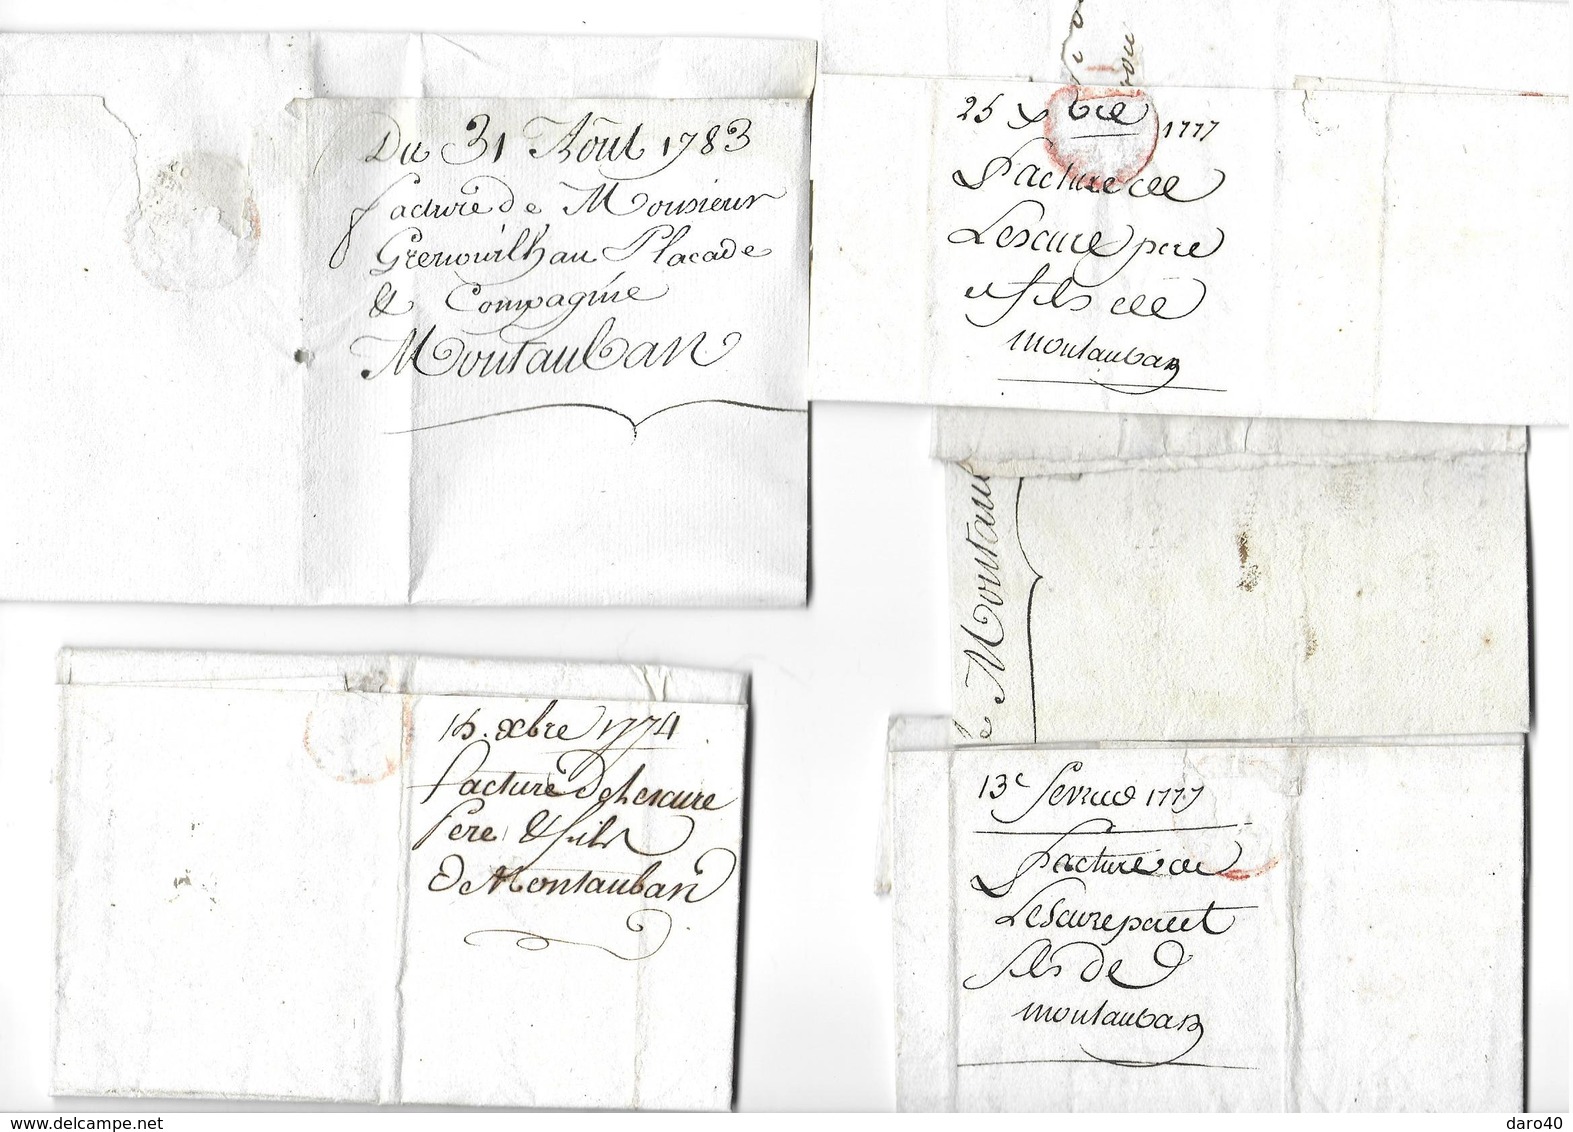 Du 31 Aôut 1783
facture de Monsieur
Grenouilhau Placade
& Compagnie
Montauban
25 xbre 1777
Facture de
Lescure pere
et fils de
montauban
Montau
15. xbre 1774
facture de Lescure
Pere & fils
de Montauban
13e fevrier 1777
Facture de
Lescure pere et
fils de
montauban
www.delcampe.net
daro40